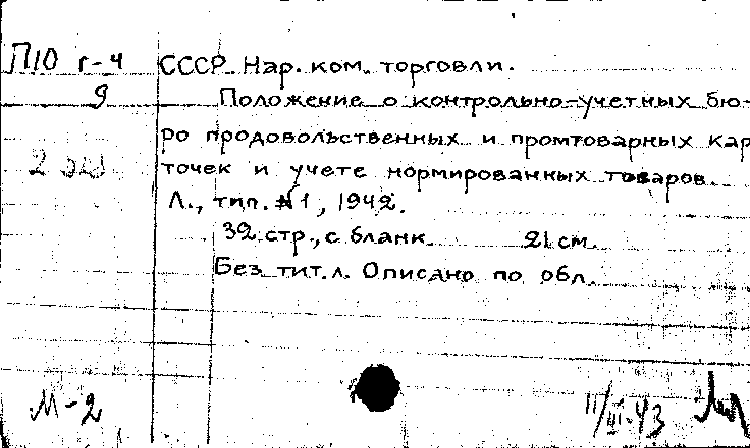 П10 г-4 СССР. Нар. ком. торговли.
9 Положение о контрольно-учетных бю-
ро продовольственных и промтоварных кар
2 экз точек и учете нормированных товаров.
Л., тип. №1, 1942.
32 стр., с бланк. 21 см.
Без тит. л. Описано по обл.
М-2 11/III-43